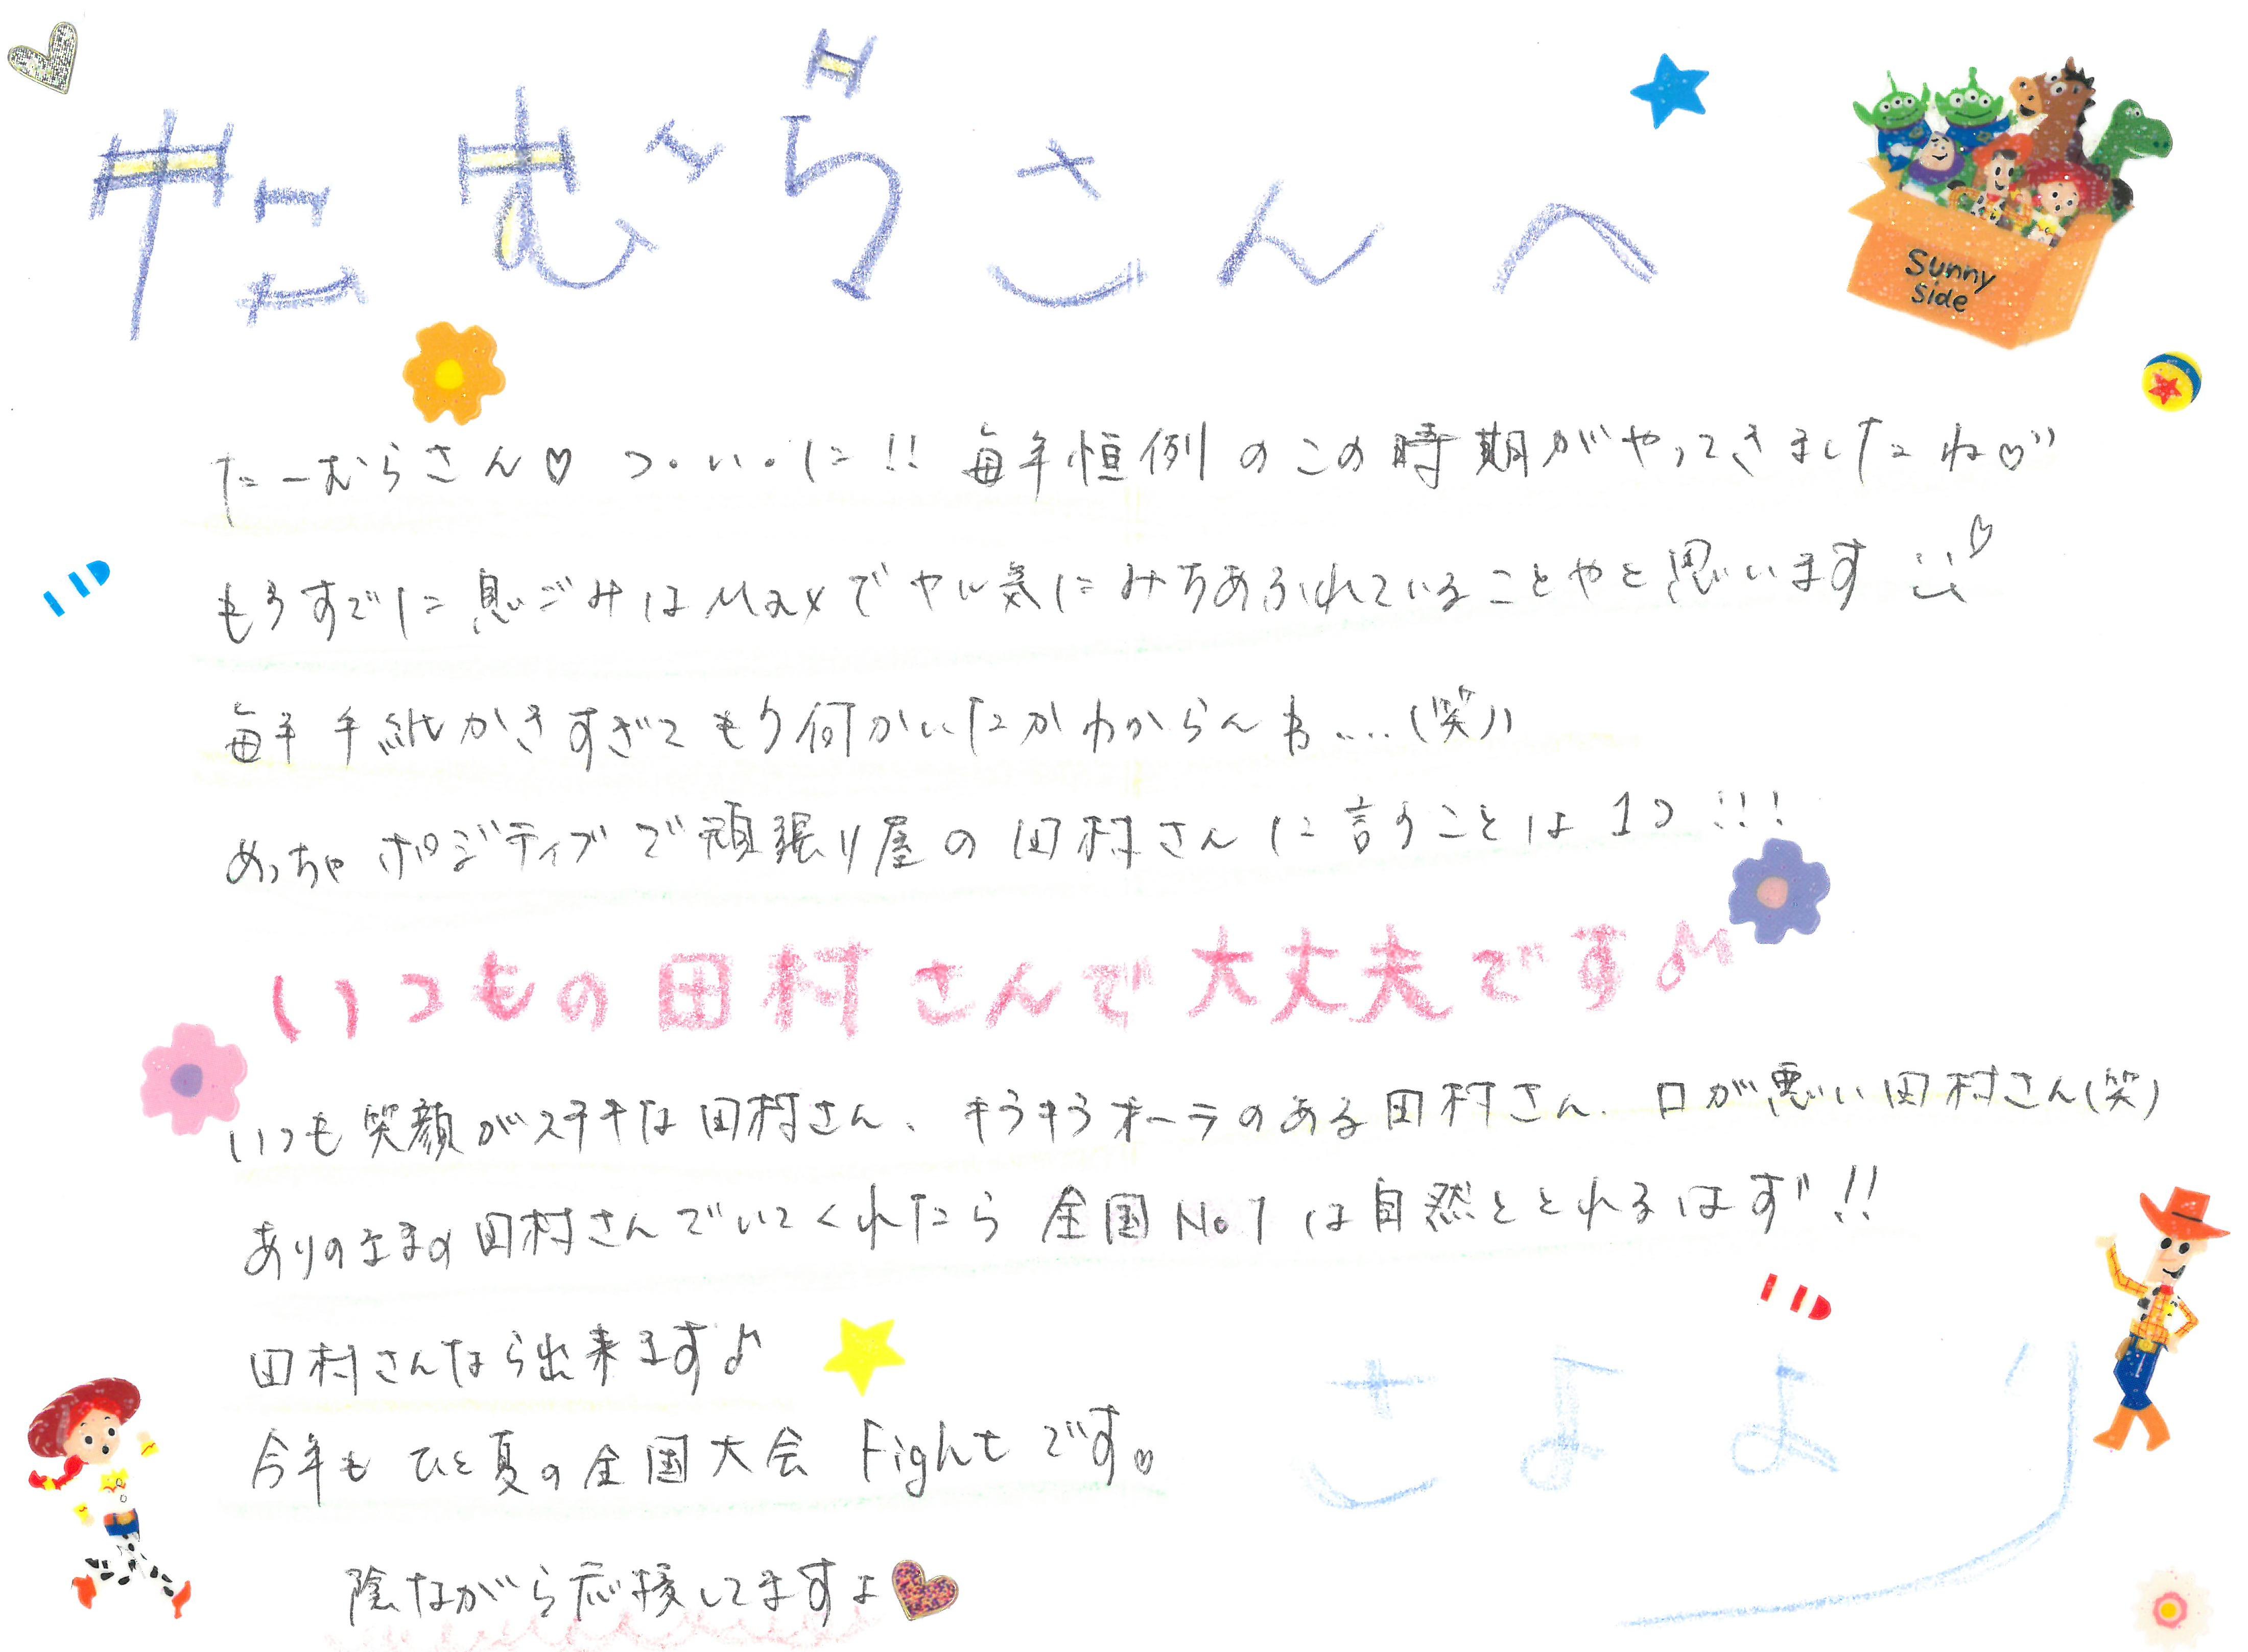 たむらさんへ
Sunny
Side
たーむらさん♡ つ・い・に!! 毎年恒例のこの時期がやってきましたね♡
もうすでに意気ごみはMaxでヤル気にみちあふれていることやと思います
毎年手紙かきすぎてもう何かいたかわからんわ....(笑)
めっちゃポジティブで頑張り屋の田村さんに言うことは1つ!!!
いつもの田村さんで大丈夫です♪
いつも笑顔がステキな田村さん、キラキラオーラのある田村さん、口が悪い田村さん(笑)
ありのままの田村さんでいてくれたら全国No1は自然ととれるはず!!
田村さんなら出来ます♪
今年もひと夏の全国大会Fightです♡
さよより
陰ながら応援してますよ